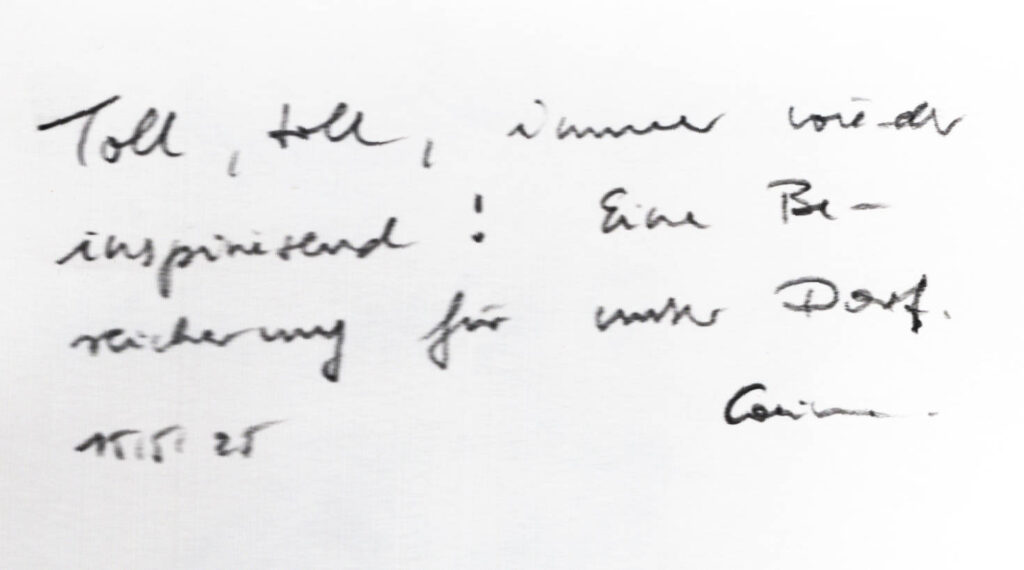 Toll, toll, immer wieder
inspirierend! Eine Be-
reicherung für unser Dorf.
15.5.25